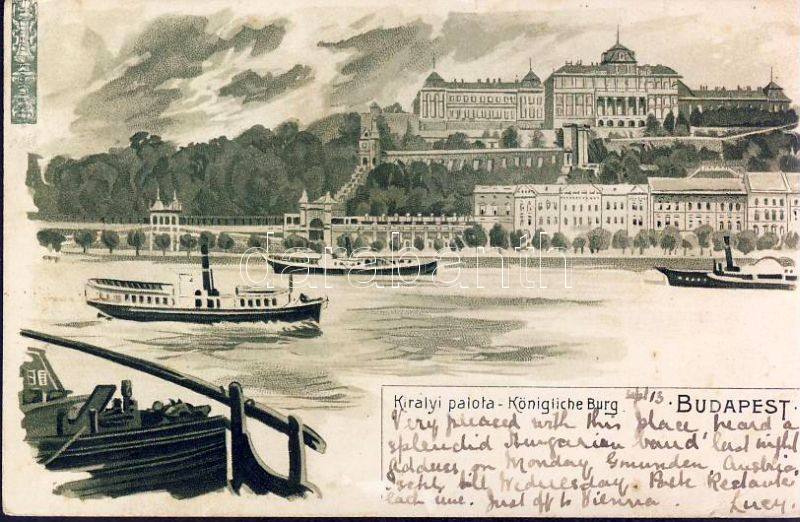 darabanth
Királyi palota - Königliche Burg
Sept 13
· BUDAPEST ·
Very pleased with this place heard a
splendid Hungarian band last night
Address on Monday, Gmunden, Austria.
till Wednesday. Poste Restante
each time. Just off to Vienna. Lucy.